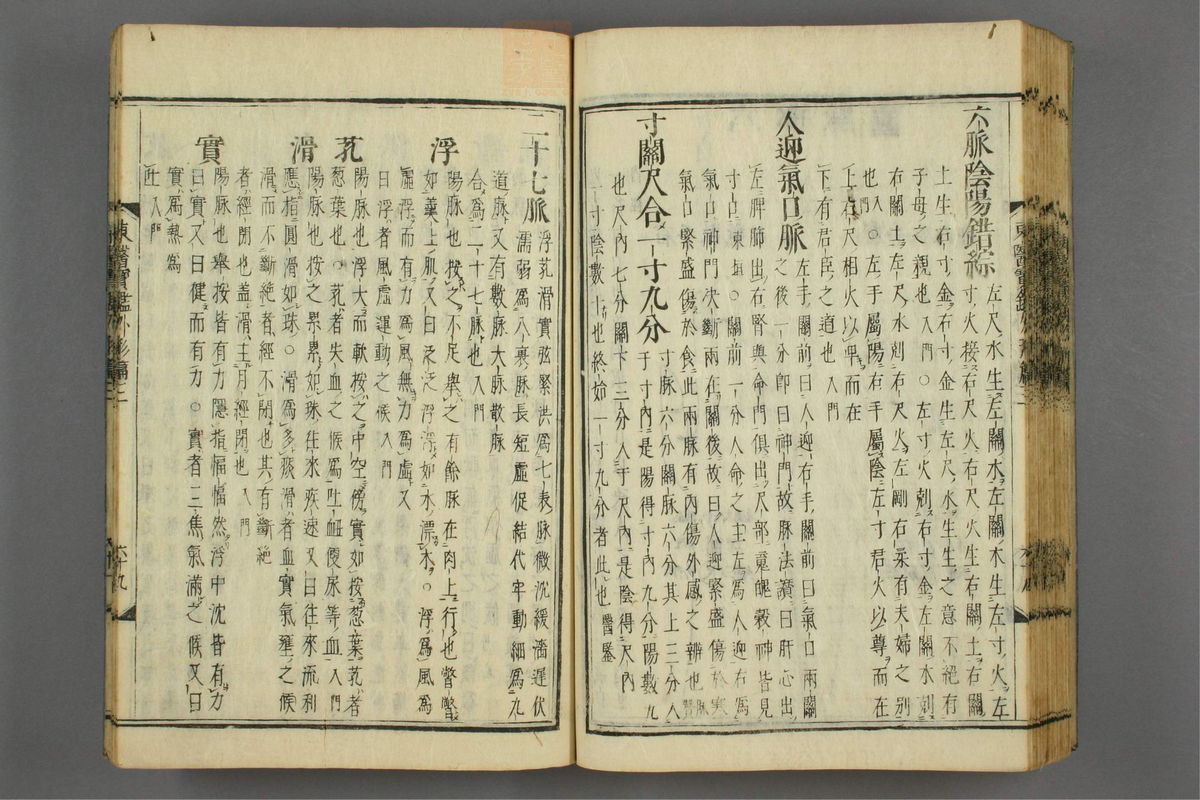 六脈陰陽錯綜
左尺水生左關木左關木生左寸火左
寸火接右尺火右尺火生右關土右關
土生右寸金右寸金生左尺水生生之意不絕有
子母之親也入門○左寸火剋右寸金左關木剋
右關土左尺水剋右尺火左剛右柔有夫婦之別
也入門○左手屬陽右手屬陰左寸君火以尊而在
上右尺相火以卑而在
下有君臣之道也入門
人迎氣口脈
左手關前曰人迎右手關前曰氣口兩關
之後一分卽曰神門故脈法讚曰肝心出
左脾肺出右腎與命門俱出尺部魂魄穀神皆見
寸口東垣○關前一分人命之主左爲人迎右爲
氣口神門決斷兩在關後故曰人迎緊盛傷於寒
氣口緊盛傷於食此兩脈有內傷外感之辨也脈贊
寸關尺合一寸九分
寸脈六分關脈六分其上三分入
于寸內是陽得寸內九分陽數九
也尺內七分關下三分入于尺內是陰得尺內
一寸陰數十也終始一寸九分者此也醫鑒
東醫寶鑑外形篇二
六十九
二十七脈
浮芤滑實弦緊洪爲七表脈微沈緩濇遲伏
濡弱爲八裏脈長短虛促結代牢動細爲九
道脈又有數脈大脈散脈
合爲二十七脈也入門
浮
陽脈也按之不足擧之有餘脈在肉上行也瞥瞥
如羹上肌又曰泛泛浮浮如水漂木○浮爲風爲
虛浮而有力爲風無力爲虛又
曰浮者風虛運動之候入門
芤
陽脈也浮大而軟按之中空傍實如按葱葉芤者
葱葉也○芤者失血之候爲吐衄便尿等血入門
滑
陽脈也按之累累如珠往來疾速又曰往來流利
應指圓滑如珠○滑爲多痰滑者血實氣壅之候
滑而不斷絕者經不閉也其有斷絕
者經閉也盖滑主月經閉也入門
實
陽脈也擧按皆有隱指愊愊然浮中沈皆有力
曰實又曰健而有力○實者三焦氣滿之候又曰
實爲熱爲
吐入門